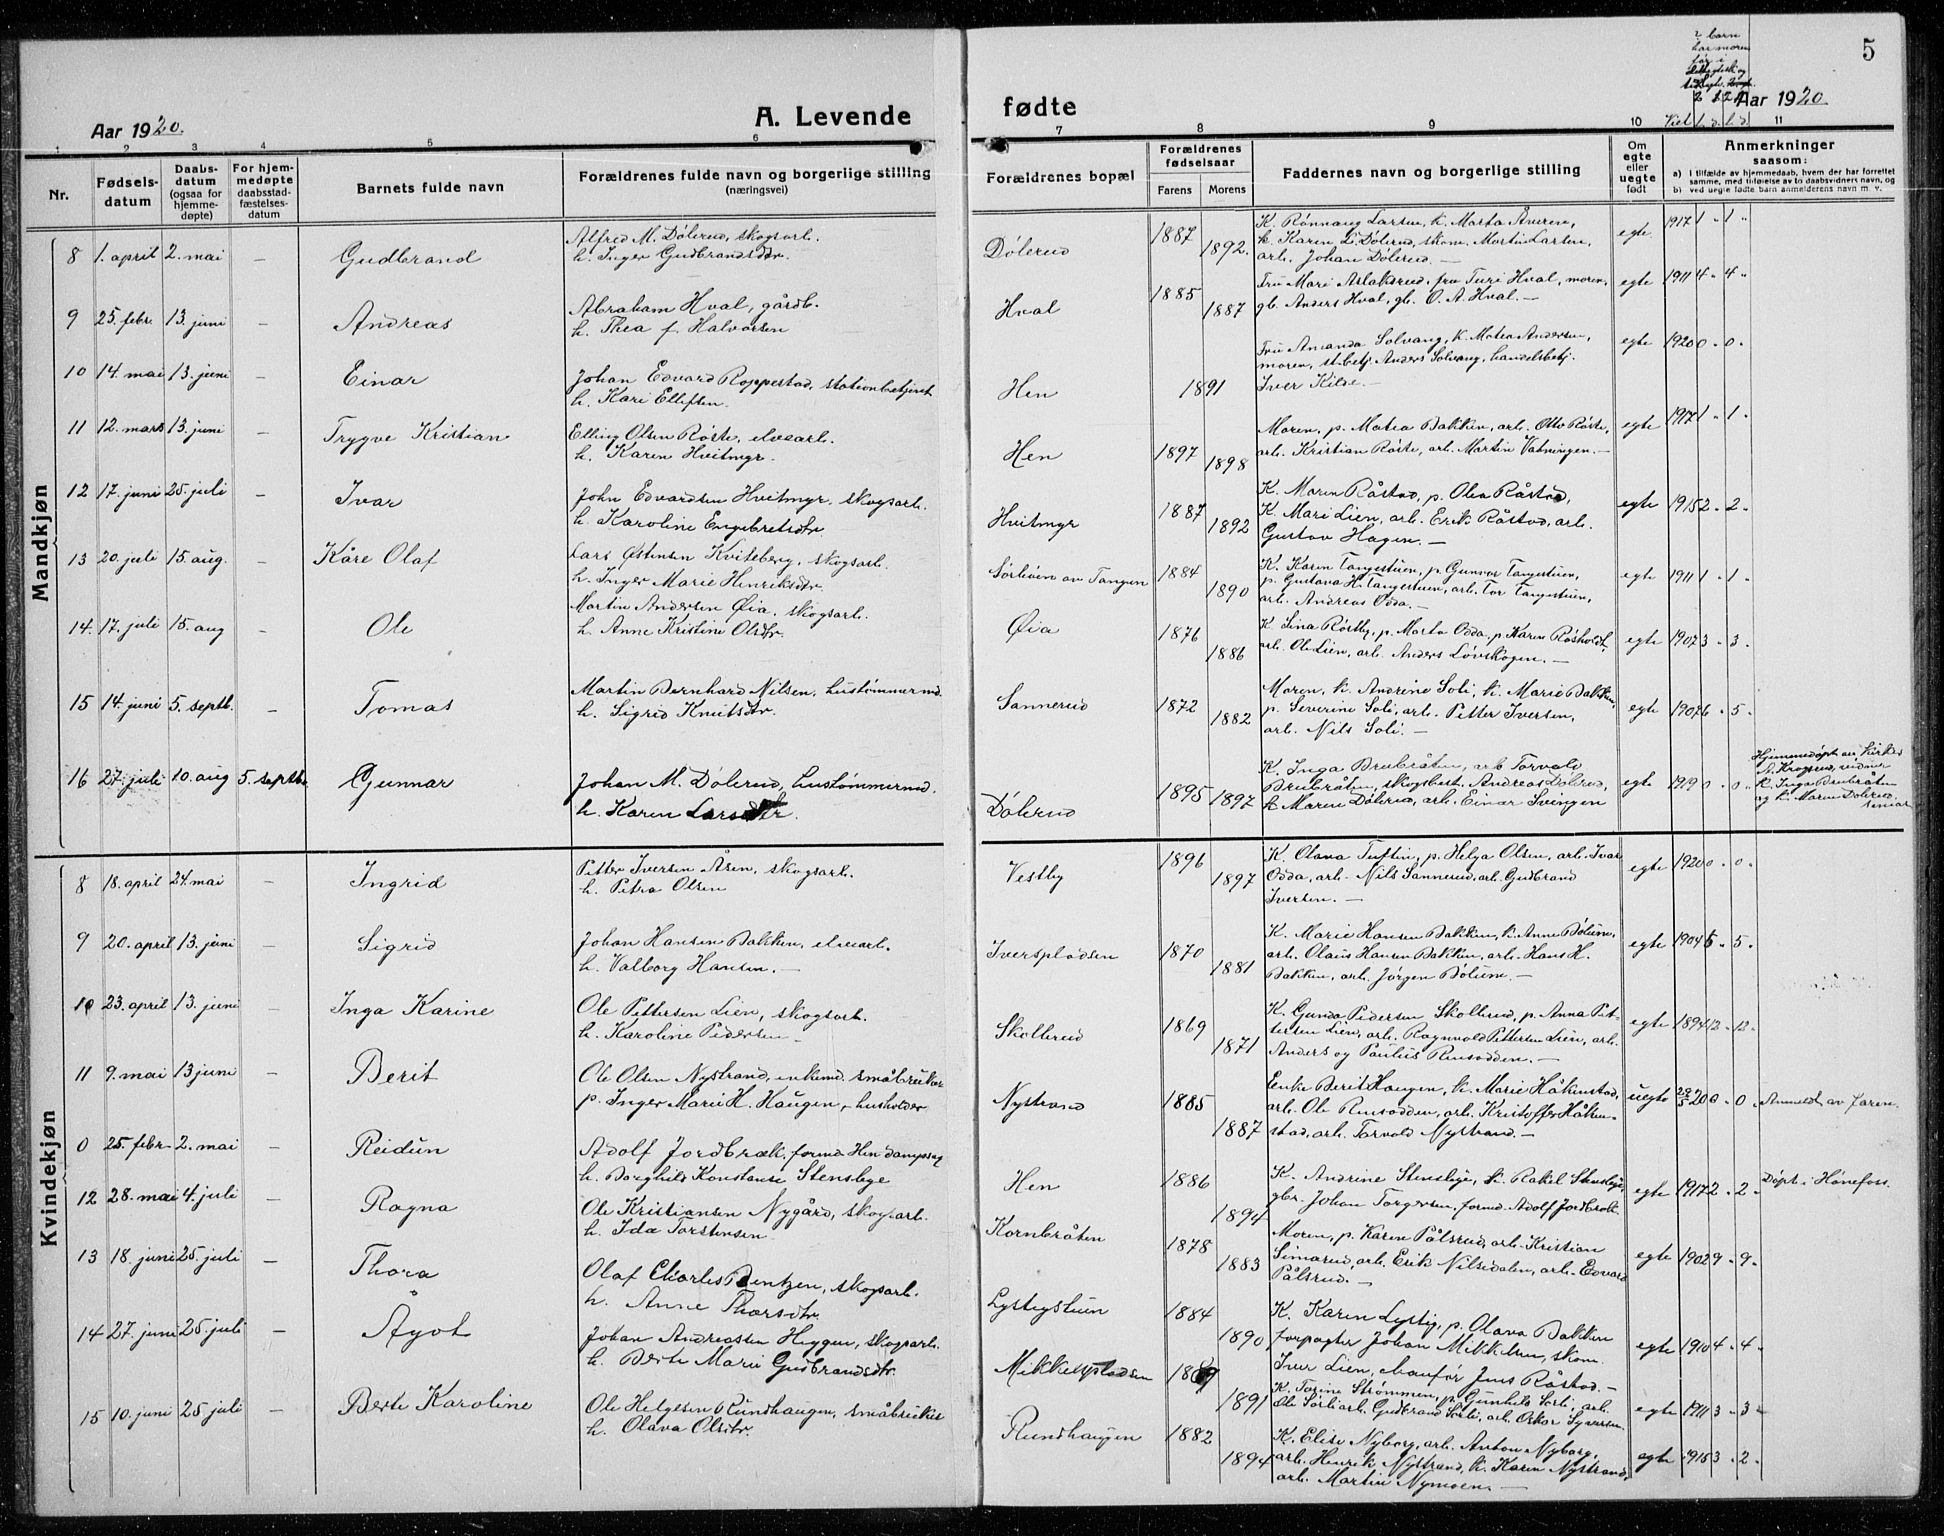 2 barn
har moren
før i
5
Aar 1920.
A. Levende
fødte
Aar 1920.
Viet l. d. l. d
1 2 3 4 5 6 7 8 9 10 11
Nr.
Fødsels-
datum
Daabs-
datum
(ogsaa for
hjemme-
døpte)
For hjem-
medøpte
daabsstad-
fæstelses-
datum
Barnets fulde navn
Forældrenes fulde navn og borgerlige stilling
(næringsvei)
Forældrenes bopæl
Forældrenes
fødselsaar
Farens Morens
Faddernes navn og borgerlige stilling
Om
egte
eller
uegte
født
Anmerkninger
saasom:
a) i tilfælde av hjemmedaab, hvem der har forrettet
samme, med tilføielse av to daabsvidners navn, og
b) ved uegte fødte barn anmelderens navn m. v.
Mandkjøn
8 1. april 2. mai – Gudbrand
Alfred M. Dølerud, skogsarb.
h. Inger Gudbrandsdtr.
Dølerud 1887 1892.
K. Rønnaug Larsen, k. Marta Åveren,
k. Karen L. Dølerud, skom. Martin Larsen,
arb. Johan Dølerud. –
egte 1917 1 " 1 "
9 25. febr. 13. juni – Andreas
Abraham Hval, gårdb.
h. Thea f. Halvorsen
Hval 1885 1887
Fru Mari Aslaksrud, fru Turi Hval, moren,
gb. Anders Hval, gb. O. A. Hval. –
egte 1911 4 " 4 "
10 14. mai 13. juni – Einar
Johan Edvard Roppestad, stationbetjent
h. Kari Ellefsen.
Hen 1891
Fru Amanda Solvang, k. Matea Andersen,
moren, st.betj. Anders Solvang, handelsbetj.
Iver Kilde. –
egte 1920 0 " 0 "
11 12. mars 13. juni – Trygve Kristian
Elling Olsen Røste, elvearb.
h. Karen Hvitmyr.
Hen 1897 1898
Moren, p. Matea Bakken, arb. Otto Røste,
arb. Kristian Røste, arb. Martin Vatningen. –
egte 1917 1 " 1 "
12 17. juni 25. juli – Ivar
John Edvardsen Hvitmyr, skogsarb.
h. Karoline Engebretsdtr
Hvitmyr 1887 1892
K. Maren Råstad, p. Olea Råstad,
K. Mari Lien, arb. Erik Råstad, arb.
Gustav Hagen. –
egte 1915 2 " 2 "
13 20. juli 15. aug. – Kåre Olaf
Lars Østensen Kviteberg, skogsarb.
h. Inger Marie Henriksdtr.
Sørbøen av Tangen 1884 1890
K. Karen Tangestuen, p. Gunvor Tangestuen,
p. Gustava H. Tangestuen, arb. Tor Tangestuen,
arb. Andreas Odda. –
egte 1911 1 " 1 "
14. 17. juli 15. aug – Ole
Martin Andersen Øia, skogsarb.
h. Anne Kristine Olsdtr.
Øia 1876 1886
K Lina Røstby, p. Marta Odda, p Karen Røsholdt,
arb. Ole Lien, arb. Anders Løvskogen. –
egte 1907 3 " 3 "
15 14. juni 5. septb. – Tomas
Martin Bernhard Nilsen, hustømmermd.
h. Sigrid Knutsdtr.
Sannerud 1872 1882
Moren, k. Andrine Soli, k. Marie Bakken,
p. Severine Soli, arb. Petter Iversen,
arb. Nils Soli. –
egte 1907 6 " 5 "
16 27. juli 10. aug 5. septb. Gunnar
Johan M. Dølerud, hustømmermd.
h. Karen Larsdtr.
Dølerud 1895 1897
K. Inga Brubråten, arb Torvald
Brubråten, skogsbest. Andreas Dølerud,
k Maren Dølerud, arb. Einar Svingen
egte 1919 0 " 0 "
Hjemmedøpt av kirkes.
A. Krogsrud, vidner
k. Inga Brubråten
og k. Maren Dølerud,
senior
Kvindekjøn
8 18. april 24. mai – Ingrid
Petter Iversen Åsen, skogsarb.
h. Petra Olsen
Vestby 1896 1897
K. Olava Tuftin, p. Helga Olsen, arb. Ivar
Odda, arb. Nils Sannerud, arb. Gudbrand
Iversen. –
egte 1920 0 " 0 "
9 20. april 13. juni – Sigrid
Johan Hansen Bakken, elvearb.
h. Valborg Hansen. –
Iversplassen 1870 1881
K. Marie Hansen Bakken, k. Anne Bølum,
arb. Olaus Hansen Bakken, arb. Hans H.
Bakken, arb. Jørgen Bølum. –
egte 1904 5 " 5 "
10 23. april 13. juni – Inga Karine
Ole Pettersen Lien, skogsarb.
h. Karoline Pedersen
Skollerud 1869 1871
K. Gunda Pedersen Skollerud, p. Anna Pet-
tersen Lien, arb. Ragnvald Pettersen Lien, arb.
Anders og Paulus Rusodden. –
egte 1894 12 " 12 "
11 9. mai 13 juni – Berit
Ole Olsen Nystrand, enkemd. småbruker
p. Inger Marie H. Haugen, husholder
Nystrand 1885 1887
Enke Berit Haugen, k. Marie Håkenstad,
arb. Ole Rusodden, arb. Kristoffer Håken-
stad, arb. Torvald Nystrand. –
uegte 29/5 20 0 " 0 " Anmeldt av faren.
0 25. febr. 2. mai – Reidun
Adolf Jordbræk, formd Hen dampsag
h. Borghild Konstanse Stenslege
Hen 1886 1894
K. Andrine Stenslege, k. Rakel Stenslege,
gbr. Johan Torgersen, formd. Adolf Jordbræk
egte 1917 2 " 2 " Døpt i Hønefoss.
12 28. mai 4. juli – Ragna
Ole Kristiansen Nygård, skogsarb.
h. Ida Torstensen
Kornbråten 1878 1883
Moren, p. Karen Pålsrud, arb. Kristian
Simarud, arb. Erik Nilsedalen, arb. Edvard
Pålsrud. –
egte 1902 9 " 9 "
13 18. juni 25. juli – Thora
Olaf Charles Bentzen, skogsarb.
h. Anne Thorsdtr
Lystigstuen 1884 1890
K. Karen Lystig, p. Olava Bakken
forpagter Johan Mikkelsen, skom.
Iver Lien, chaufør Jens Råstad. –
egte 1910 4 " 4 "
14 27. juni 25. juli – Ågot
Johan Andreassen Heggen, skogsarb.
h. Berte Marie Gudbrandsdtr.
Mikkelsplassen 1889 1891
K. Torine Strømmen, p. Gunhild Sørli, arb.
Ole Sørli, arb. Gudbrand Sørli, arb. Oskar Syversen
egte 1911 3 " 3 "
15 10. juni 25 juli – Berte Karoline
Ole Helgesen Rundhaugen, småbruker
h. Olava Olsdtr.
Rundhaugen 1882 1894
K. Elise Nyborg, arb. Anton Nyborg,
arb. Henrik Nystrand, k. Karen Nystrand,
arb. Martin Nymoen. –
egte 1915 3 " 2 "